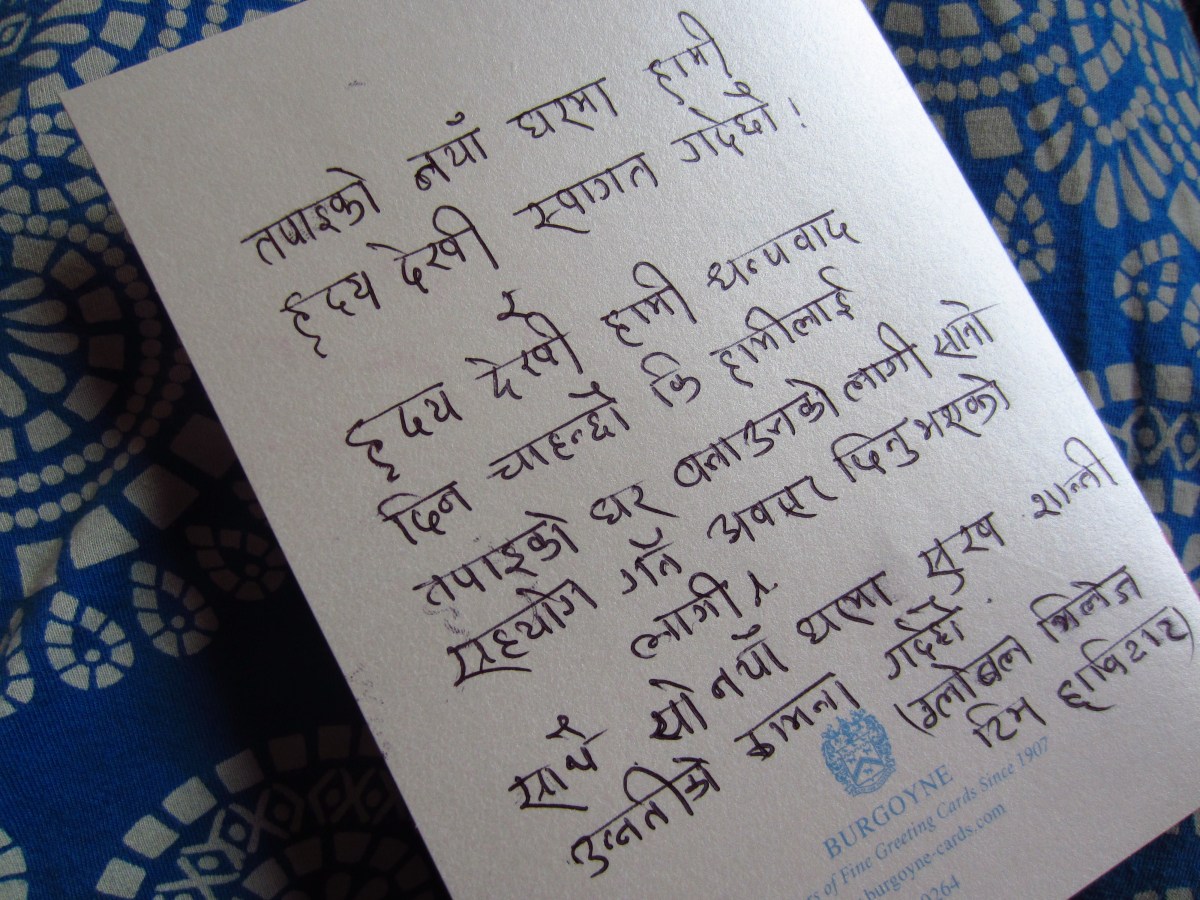 तपाइको नयाँ घरमा हामी
हृदय देखी स्वागत गर्दछौ !
हृदय देखी हामी धन्यवाद
दिन चाहन्छौ कि हामीलाई
तपाइको घर बनाउनको लागी सानो
सहयोग गर्ने अवसर दिनु भएको
लागी ।
साथै यो नयाँ घरमा सुख शान्ती
उन्नतीको कामना गर्दछौ .
(ग्लोबल भिलेज
टिम ह्याविटाट)
BURGOYNE
of Fine Greeting Cards Since 1907
burgoyne-cards.com
9264